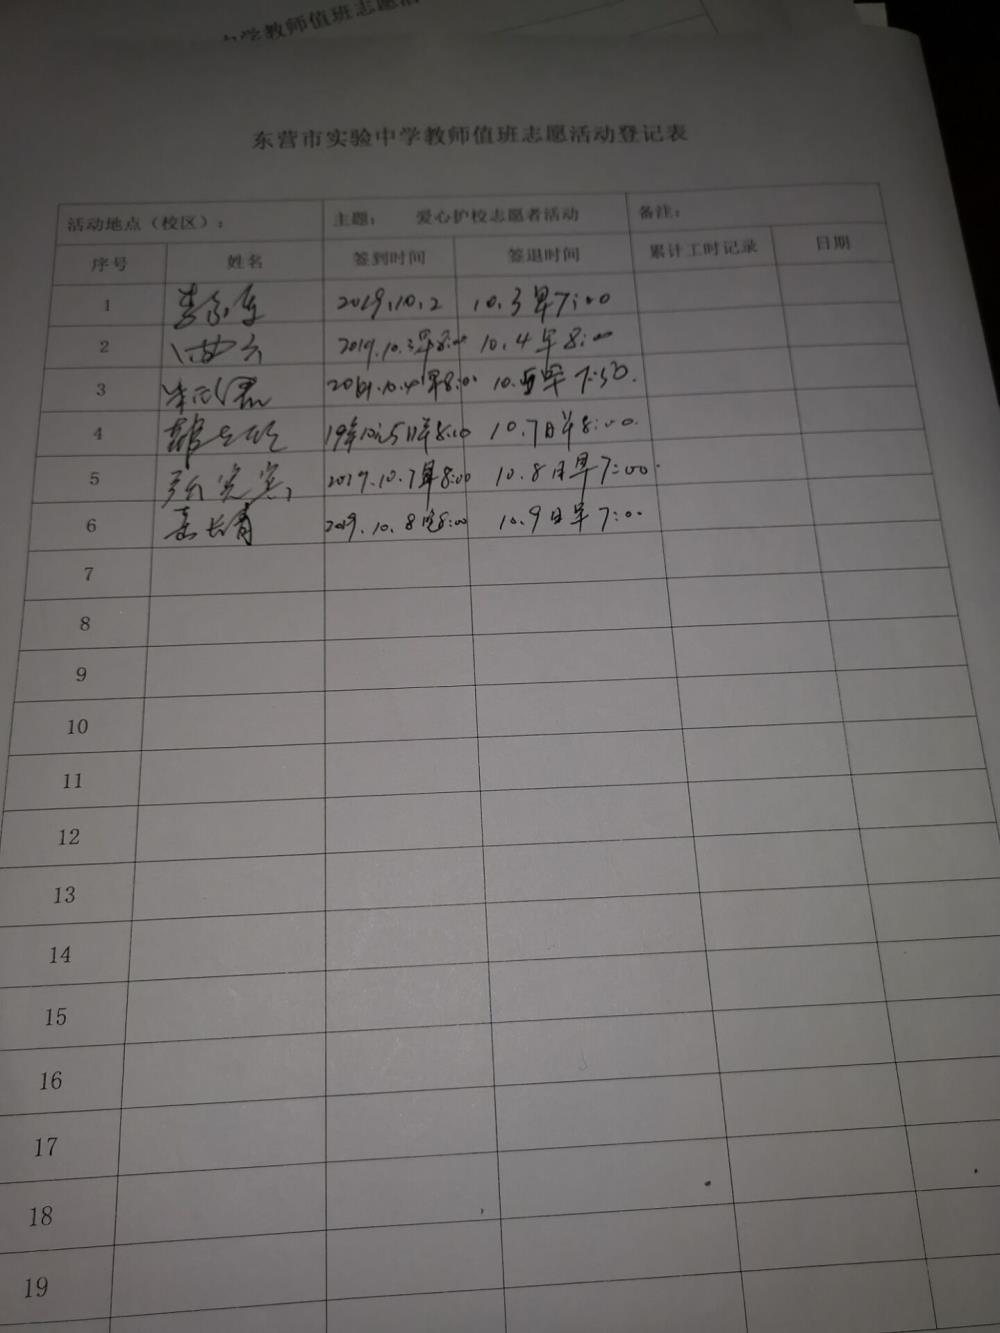 中学教师值班志愿活
东营市实验中学教师值班志愿活动登记表
活动地点（校区）： 主题： 爱心护校志愿者活动 备注：
序号 姓名 签到时间 签退时间 累计工时记录 日期
1 2019.10.2 10.3早7:00
2 2019.10.3早8:00 10.4早8:00
3 早8:00 早7:50.
4 19年10.5日早8:00 10.7日早8:00.
5 2019.10.7早8:00 10.8日早7:00.
6 2019.10.8 8:00 10.9日早7:00
7
8
9
10
11
12
13
14
15
16
17
18
19